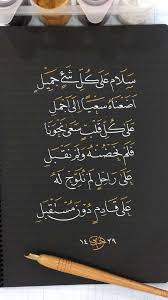 سلام على كل شيء جميل
أضعناه سعيا إلى أجمل
على كل قلب سعى نحونا
فلم نحتضنه ولم نقبل
على راحل لم نلوح له
على قادم دون مستقبل
١٤٢٩